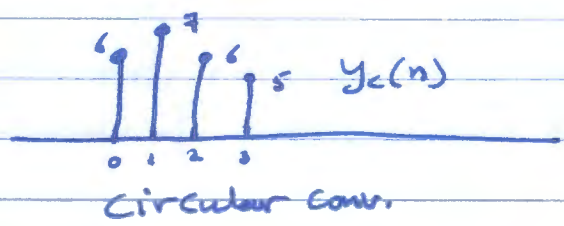 6 7 6 5 y_c(n)
0 1 2 3
Circular conv.